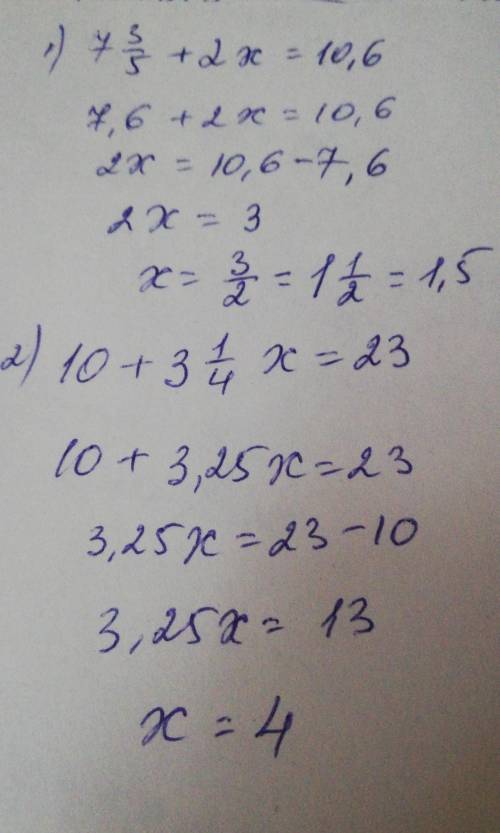 1) 7 3/5 + 2x = 10,6
7,6 + 2x = 10,6
2x = 10,6 - 7,6
2x = 3
x = 3/2 = 1 1/2 = 1,5
2) 10 + 3 1/4 x = 23
10 + 3,25x = 23
3,25x = 23 - 10
3,25x = 13
x = 4